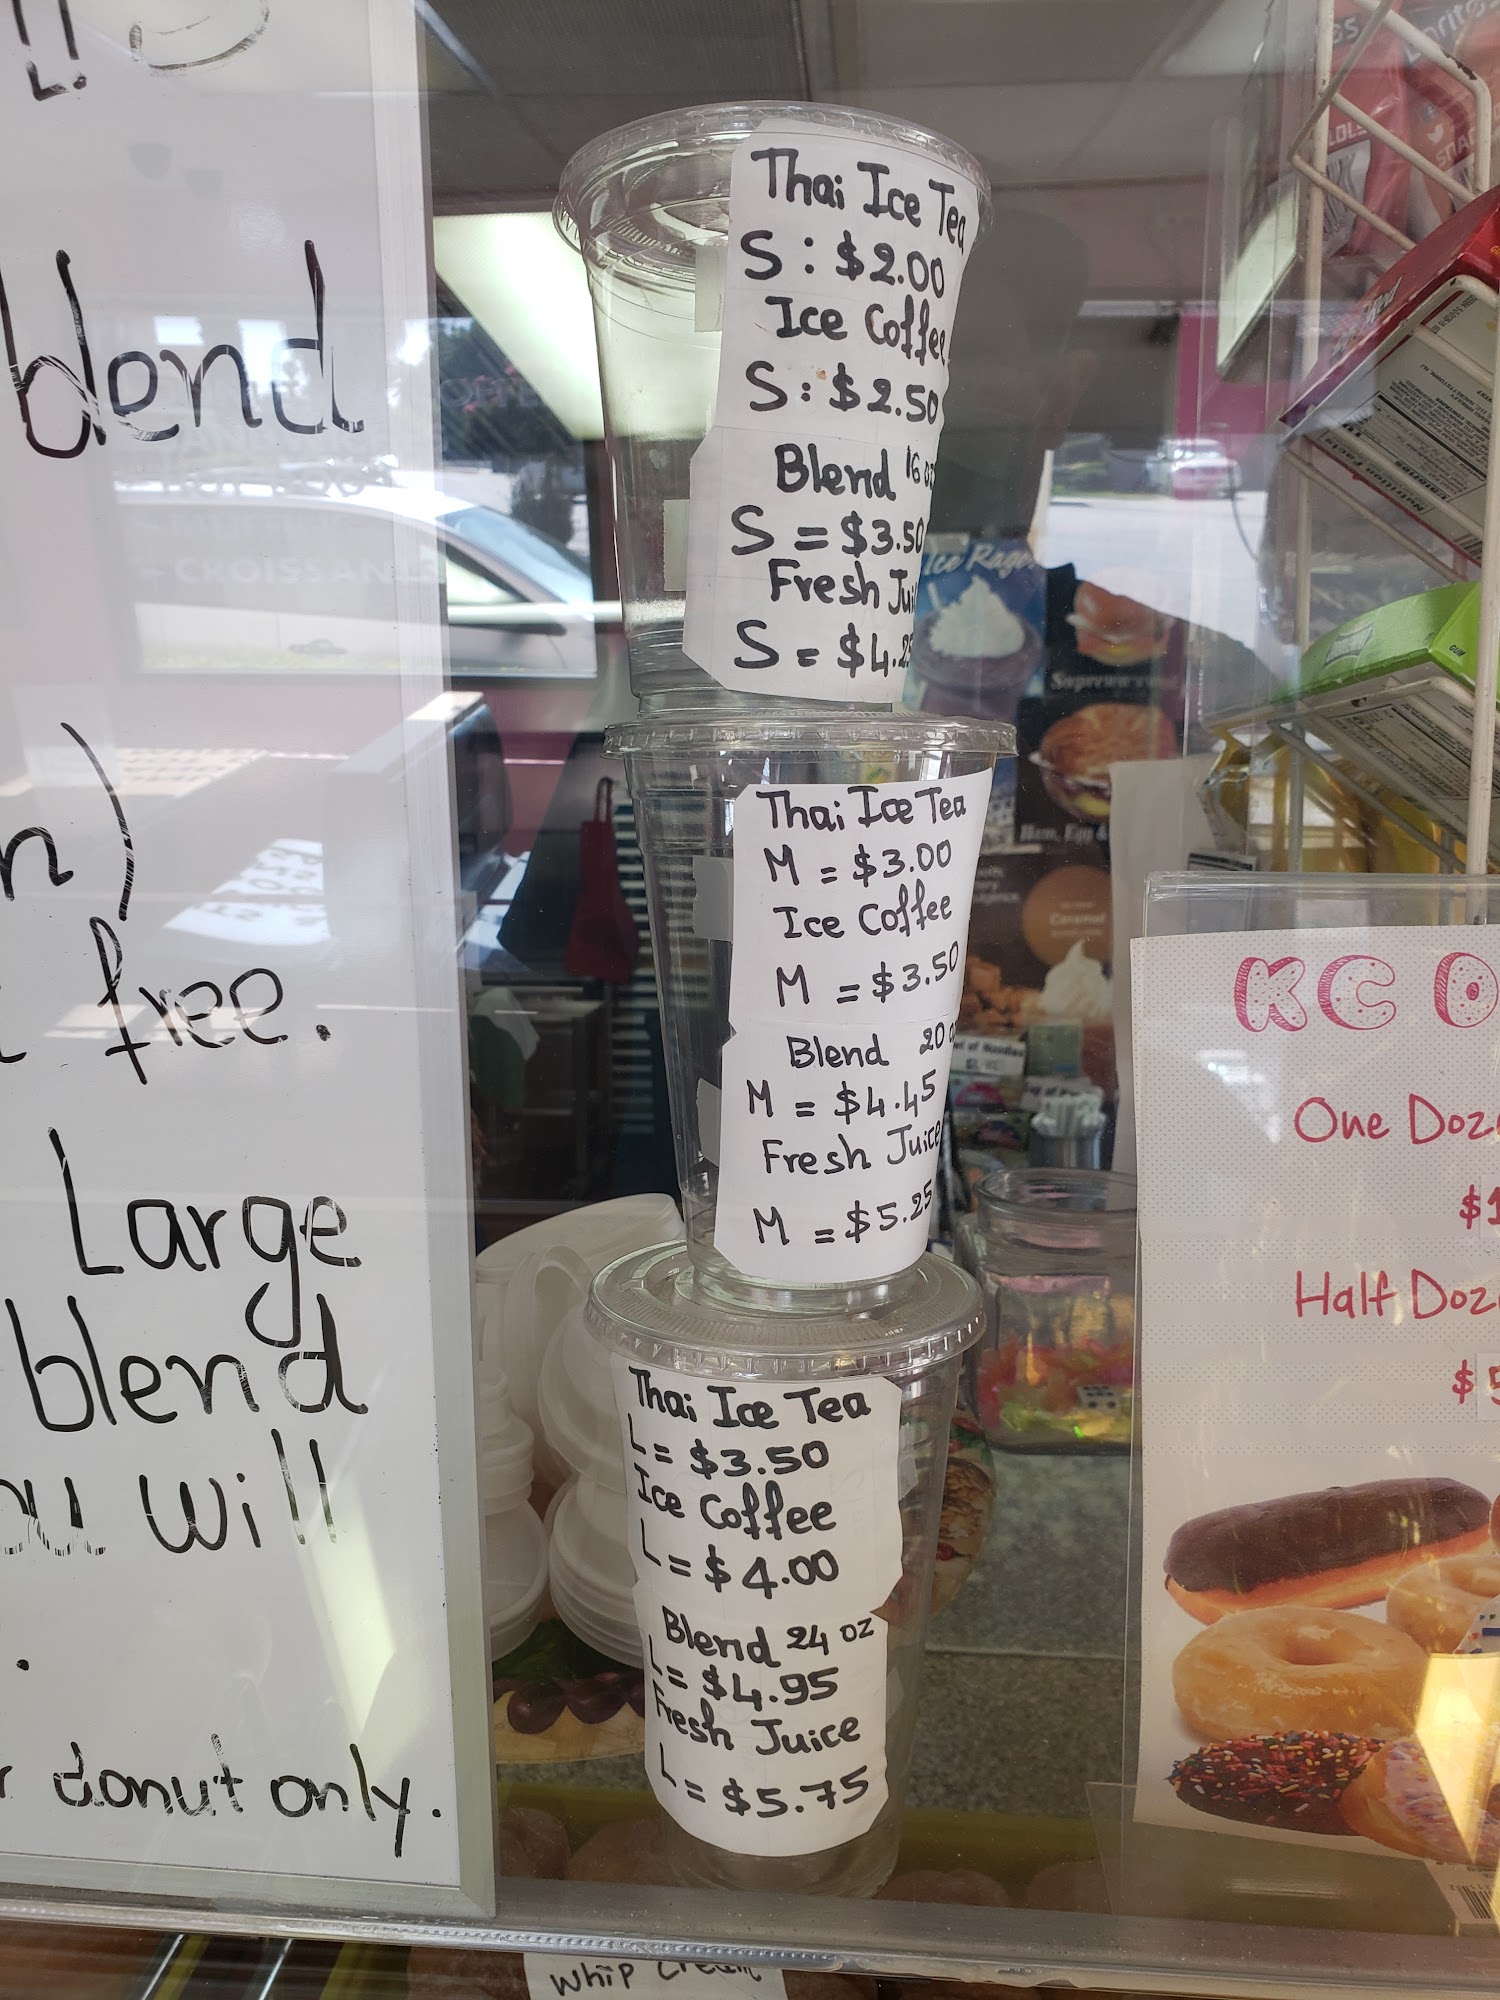 blend
free.
Large
blend
will
donut only.
Thai Ice Tea
S: $2.00
Ice Coffee
S: $2.50
Blend 16 oz
S = $3.50
Fresh Jui
S = $4.25
Thai Ice Tea
M = $3.00
Ice Coffee
M = $3.50
Blend 20 oz
M = $4.45
Fresh Juice
M = $5.25
Thai Ice Tea
L = $3.50
Ice Coffee
L = $4.00
Blend 24 oz
L = $4.95
Fresh Juice
L = $5.75
Ice Rage
Supreme
Ham, Egg &
Caramel
Nutrition Facts
GUM
KC D
One Doz
$1
Half Doz
$5
Whip Cream